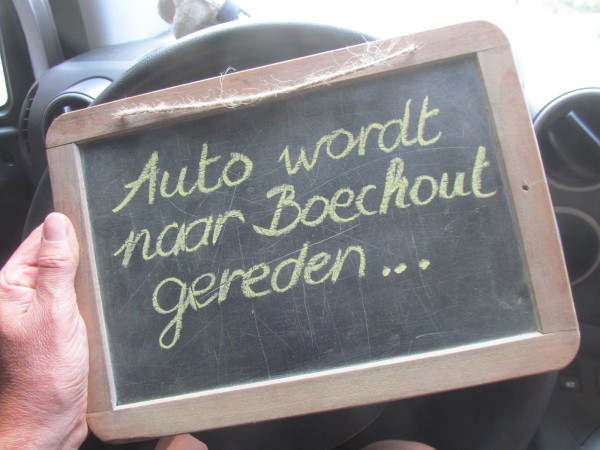 Auto wordt
naar Boechout
gereden...